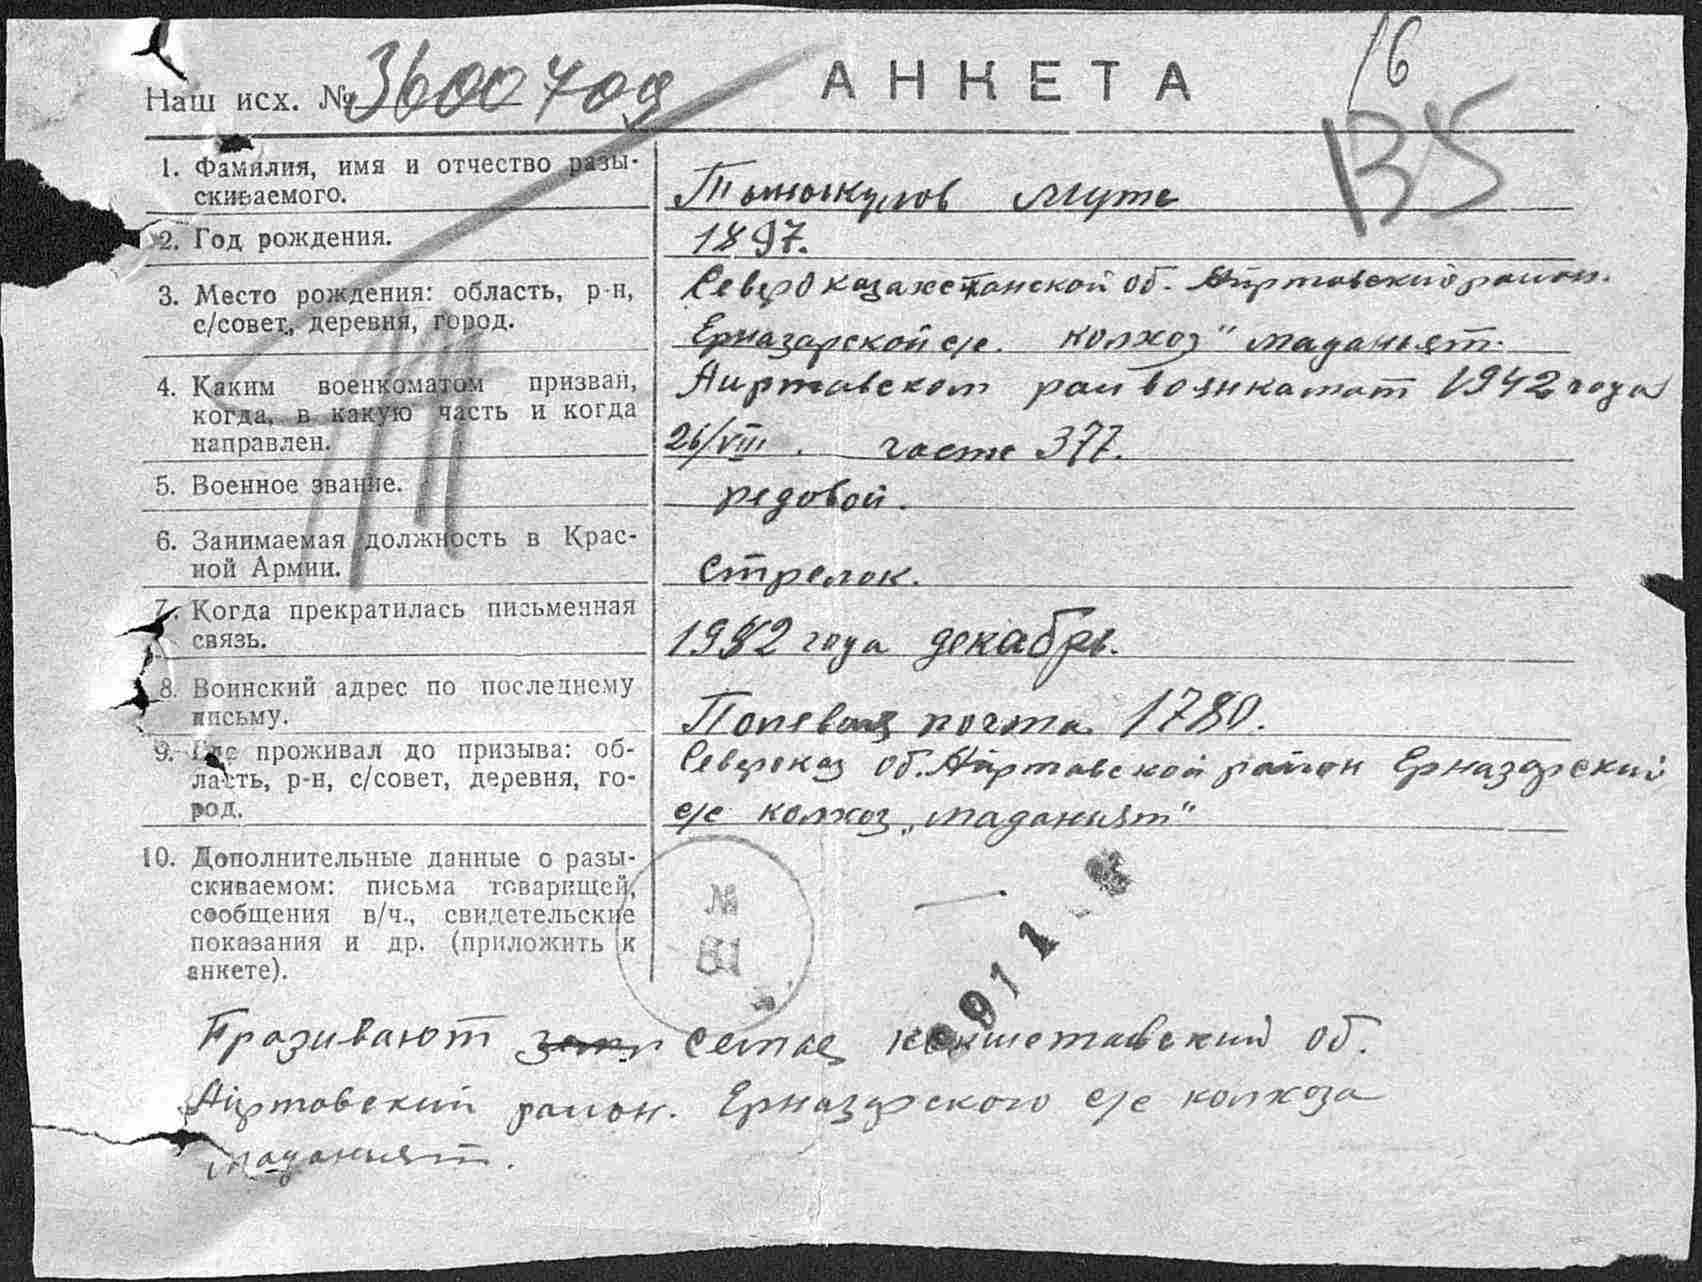 Наш исх. №
АНКЕТА
16
B5
1. Фамилия, имя и отчество разы-
скиваемого.
Тыныкулов Мутс
2. Год рождения.
1897.
3. Место рождения: область, р-н,
с/совет, деревня, город.
Северо казахстанской об. Айртовский район.
Ерназарской с/с. колхоз "маданият.
4. Каким военкоматом призван,
когда, в какую часть и когда
направлен.
Аиртавском раивоянкамат 1942 года
26/VIII. часте 377.
5. Военное звание.
редовой.
6. Занимаемая должность в Крас-
ной Армии.
Стрелок.
7. Когда прекратилась письменная
связь.
1942 года декабрь.
8. Воинский адрес по последнему
письму.
Полевая почта 1780.
9. Где проживал до призыва: об-
ласть, р-н, с/совет, деревня, го-
род.
Североказ об. Айртавской район Ерназарский
с/с колхоз „маданият"
10. Дополнительные данные о разы-
скиваемом: письма товарищей,
сообщения в/ч., свидетельские
показания и др. (приложить к
анкете).
№
Празивают семья кокшетавский об.
Айртовский район. Ерназарского с/с колхоза
маданият.